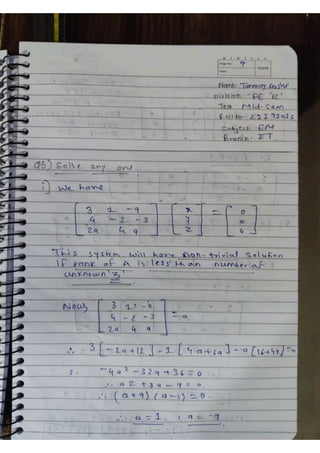 Page No. 9
Date
YOUVA
Name:
Division: "FE 'E'
Test Mid-Sem
Roll No.
Subject - EM
Branch: IT
Q3) Solve any one.
i) we have.
[ 3 1 -9 ] [ x ] = [ 0 ]
[ 4 -2 -3 ] [ y ] [ 0 ]
[ 2a 4 a ] [ z ] [ 0 ]
This system will have non-trivial solution
if rank of A is less than number of
unknown '3'
Now, [ 3 1 -9 ] = 0
[ 4 -2 -3 ]
[ 2a 4 a ]
∴ 3[-2a+12] - 1[4a+6a] -a[16+4a]=0
∴ -4a² -32a +36=0
∴ a2 + 8a - 9 = 0
∴ (a+9) (a-1) = 0
∴ a=1, a = -9